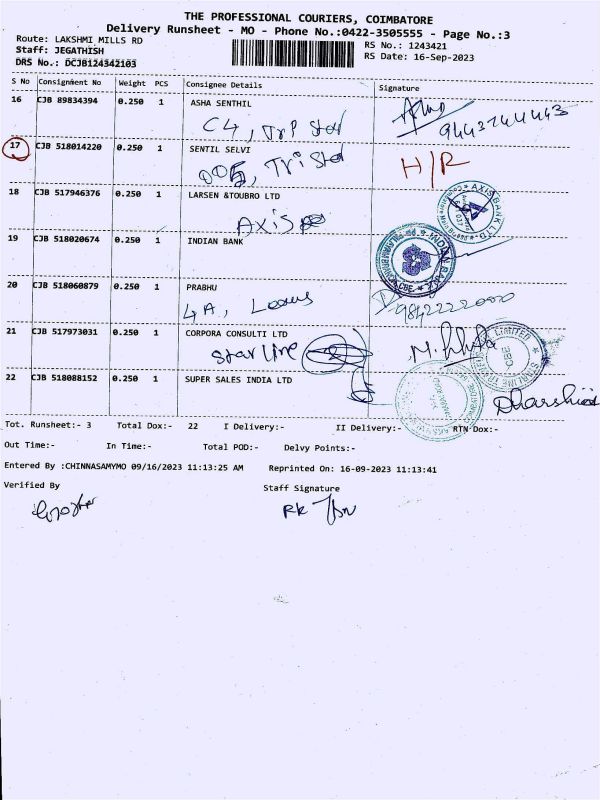 THE PROFESSIONAL COURIERS, COIMBATORE
Delivery Runsheet - MO - Phone No.:0422-3505555 - Page No.:3
Route: LAKSHMI MILLS RD
RS No.: 1243421
Staff: JEGATHISH
RS Date: 16-Sep-2023
DRS No.: DCJB124342103
S No Consignment No Weight PCS Consignee Details Signature
16 CJB 89834394 0.250 1 ASHA SENTHIL
C4, Tri Star
17 CJB 518014220 0.250 1 SENTIL SELVI
005, Tri Star H/R
18 CJB 517946376 0.250 1 LARSEN &TOUBRO LTD
Axis
AXIS BANK LTD.
19 CJB 518020674 0.250 1 INDIAN BANK
INDIAN BANK
20 CJB 518060879 0.250 1 PRABHU
4A,
21 CJB 517973031 0.250 1 CORPORA CONSULTI LTD
Starline
LIMITED
CBE
22 CJB 518088152 0.250 1 SUPER SALES INDIA LTD
Tot. Runsheet:- 3 Total Dox:- 22 I Delivery:- II Delivery:- RTN Dox:-
Out Time:- In Time:- Total POD:- Delvy Points:-
Entered By :CHINNASAMYMO 09/16/2023 11:13:25 AM Reprinted On: 16-09-2023 11:13:41
Verified By Staff Signature